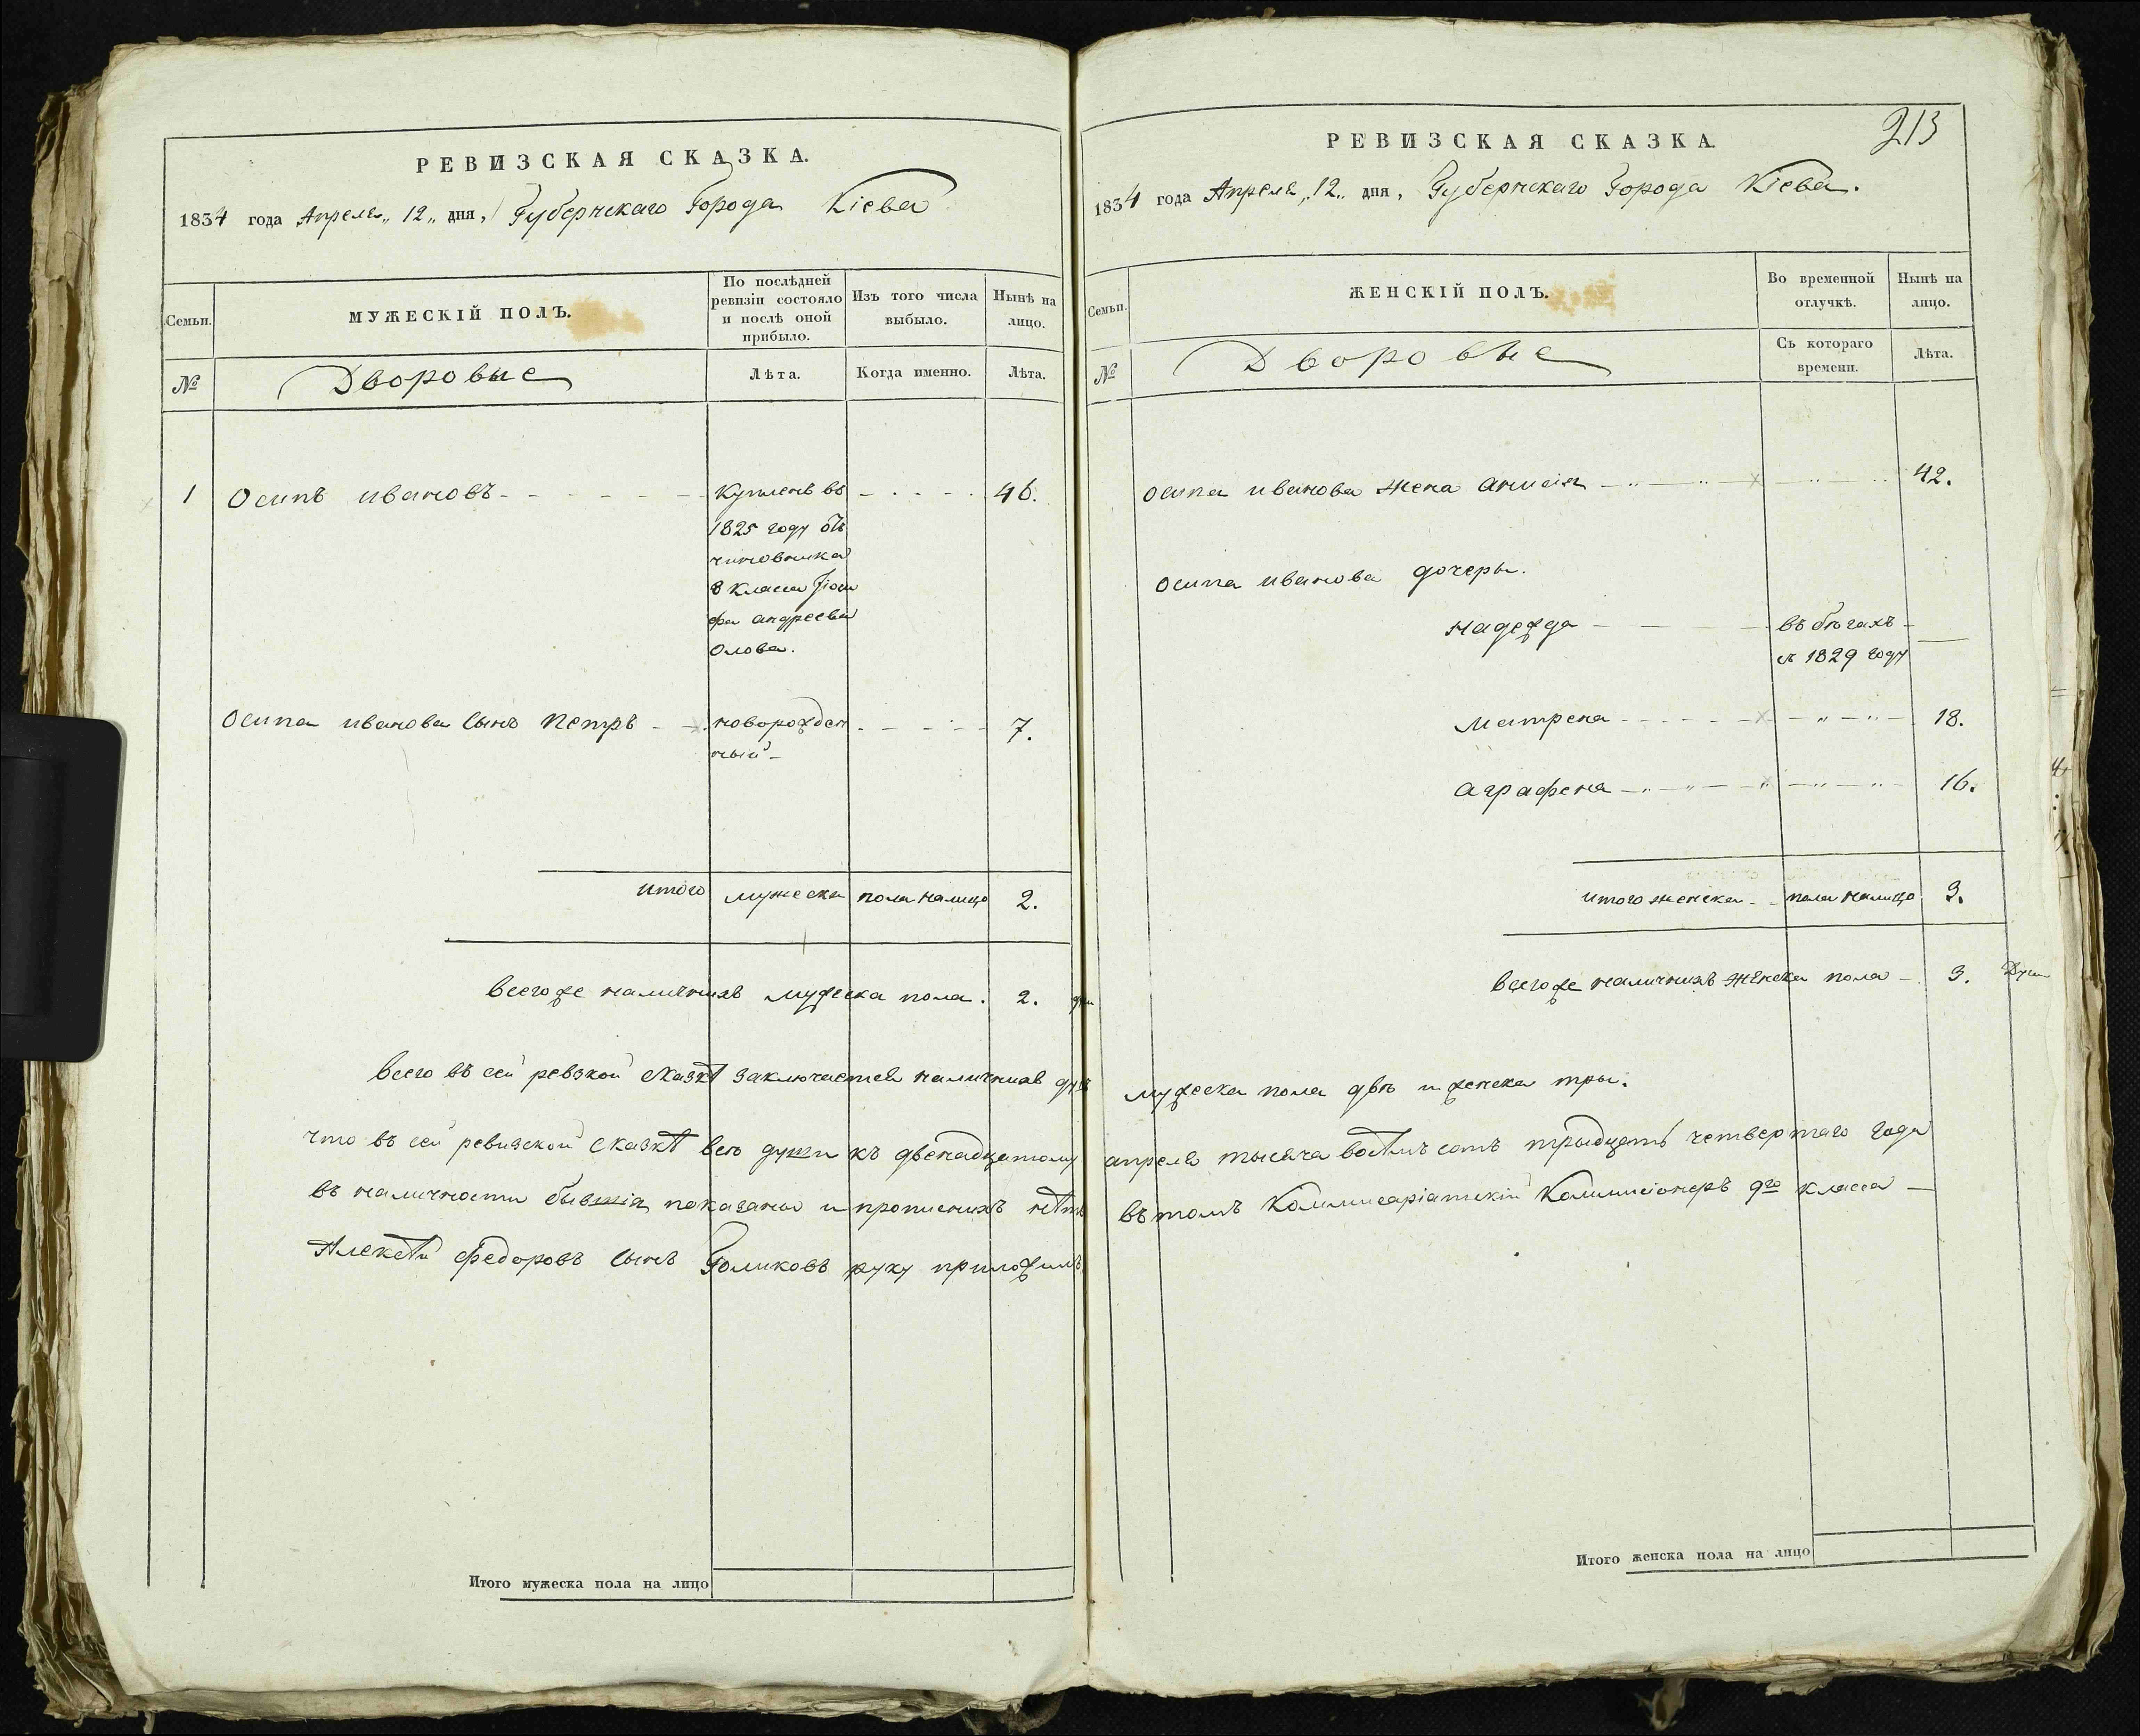 РЕВИЗСКАЯ СКАЗКА.
1834 года Апреля „ 12 „ дня, Губернскаго Города Кіева
Семьи.
МУЖЕСКІЙ ПОЛЪ.
По послѣдней
ревизіи состояло
и послѣ оной
прибыло.
Изъ того числа
выбыло.
Нынѣ на
лицо.
№
Дворовые
Лѣта.
Когда именно.
Лѣта.
1 Осипъ ивановъ купленъ въ 46.
1825 году отъ
чиновника
8 класса Іоси
фа андреева
Олова.
Осипа иванова сынъ Петръ новорожден 7.
ный
итого мужеска пола налицо 2.
всегоже наличныхъ мужеска пола. 2. душ
всего въ сей ревзкой сказкѣ заключается наличныхъ душъ
что въ сей ревизской сказкѣ все души къ двенадцатому
въ наличности бывшія показаны и прописныхъ нѣтъ
Алексѣй Федоровъ сынъ Голиковъ руку приложилъ
Итого мужеска пола на лицо
213
РЕВИЗСКАЯ СКАЗКА.
1834 года Апреля „ 12 „ дня, Губернскаго Города Кіева.
Семьи.
ЖЕНСКІЙ ПОЛЪ.
Во временной
отлучкѣ.
Нынѣ на
лицо.
№
Дворовые
Съ котораго
времени.
Лѣта.
Осипа иванова жена анисія 42.
Осипа иванова дочеры.
надежда въ бѣгахъ
съ 1829 году
матрена 18.
аграфена 16.
итого женска пола налицо 3.
всегоже наличныхъ женска пола 3. Душ
мужеска пола двѣ и женска тры.
апреля тысяча восѣмъ сотъ трыдцать четвертаго года
въ томъ Коммисаріатскій Коммисіонеръ 9го класса
Итого женска пола на лицо